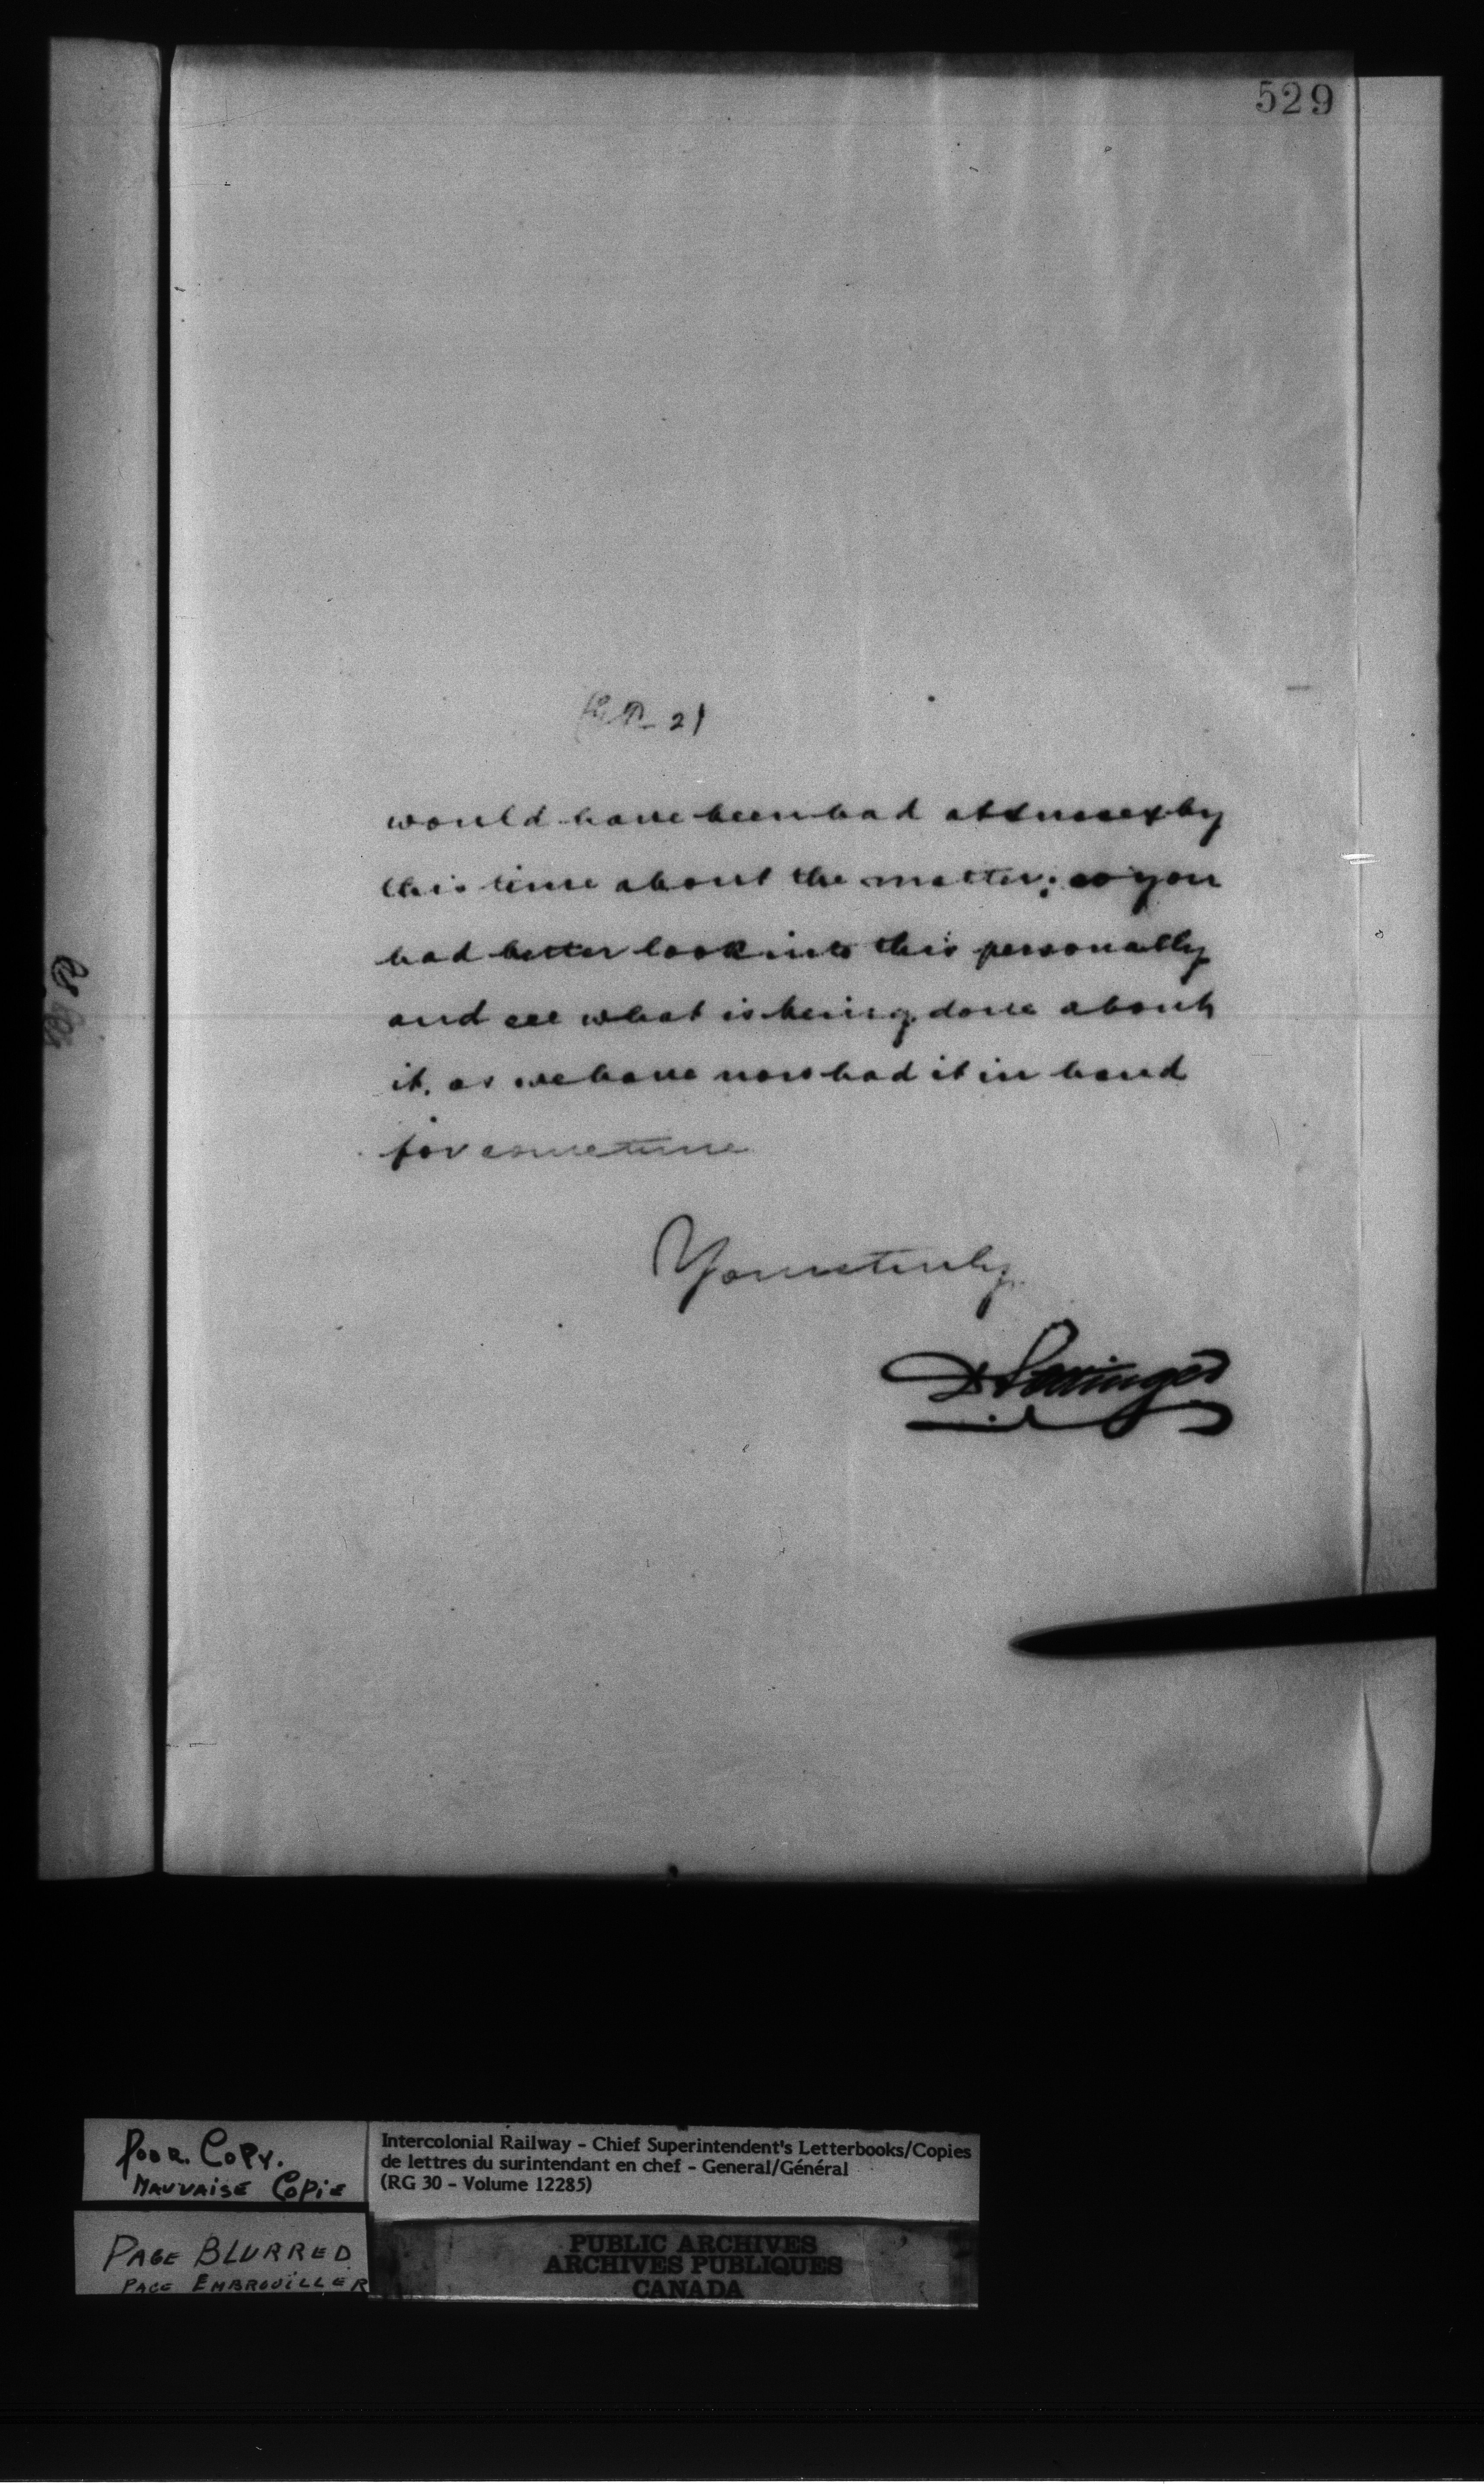 529
2)
would have been had at Sussex by
this time about the matter; so you
had better look into this personally
and see what is being done about
it, as we have now had it in hand
for sometime
Yours truly
D Pottinger
Poor Copy.
Mauvaise Copie
Intercolonial Railway - Chief Superintendent's Letterbooks/Copies
de lettres du surintendant en chef - General/Général
(RG 30 - Volume 12285)
Page Blurred
Page Embrouiller
PUBLIC ARCHIVES
ARCHIVES PUBLIQUES
CANADA